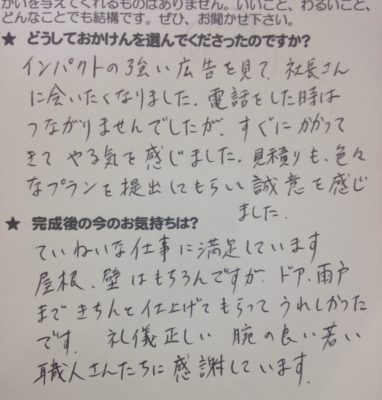 かいを与えてくれるものはありません。いいこと、わるいこと、
どんなことでも結構です。ぜひ、お聞かせ下さい。
★ どうしておかけんを選んでくださったのですか?
インパクトの強い広告を見て、社長さん
に会いたくなりました。電話をした時は
つながりませんでしたが、すぐにかかって
きて やる気を感じました。見積りも、色々
なプランを提出してもらい誠意を感じ
ました。
★ 完成後の今のお気持ちは?
ていねいな仕事に満足しています
屋根、壁はもちろんですが、ドア、雨戸
まできちんと仕上げてもらってうれしかった
です。 礼儀正しい 腕の良い若い
職人さんたちに感謝しています。